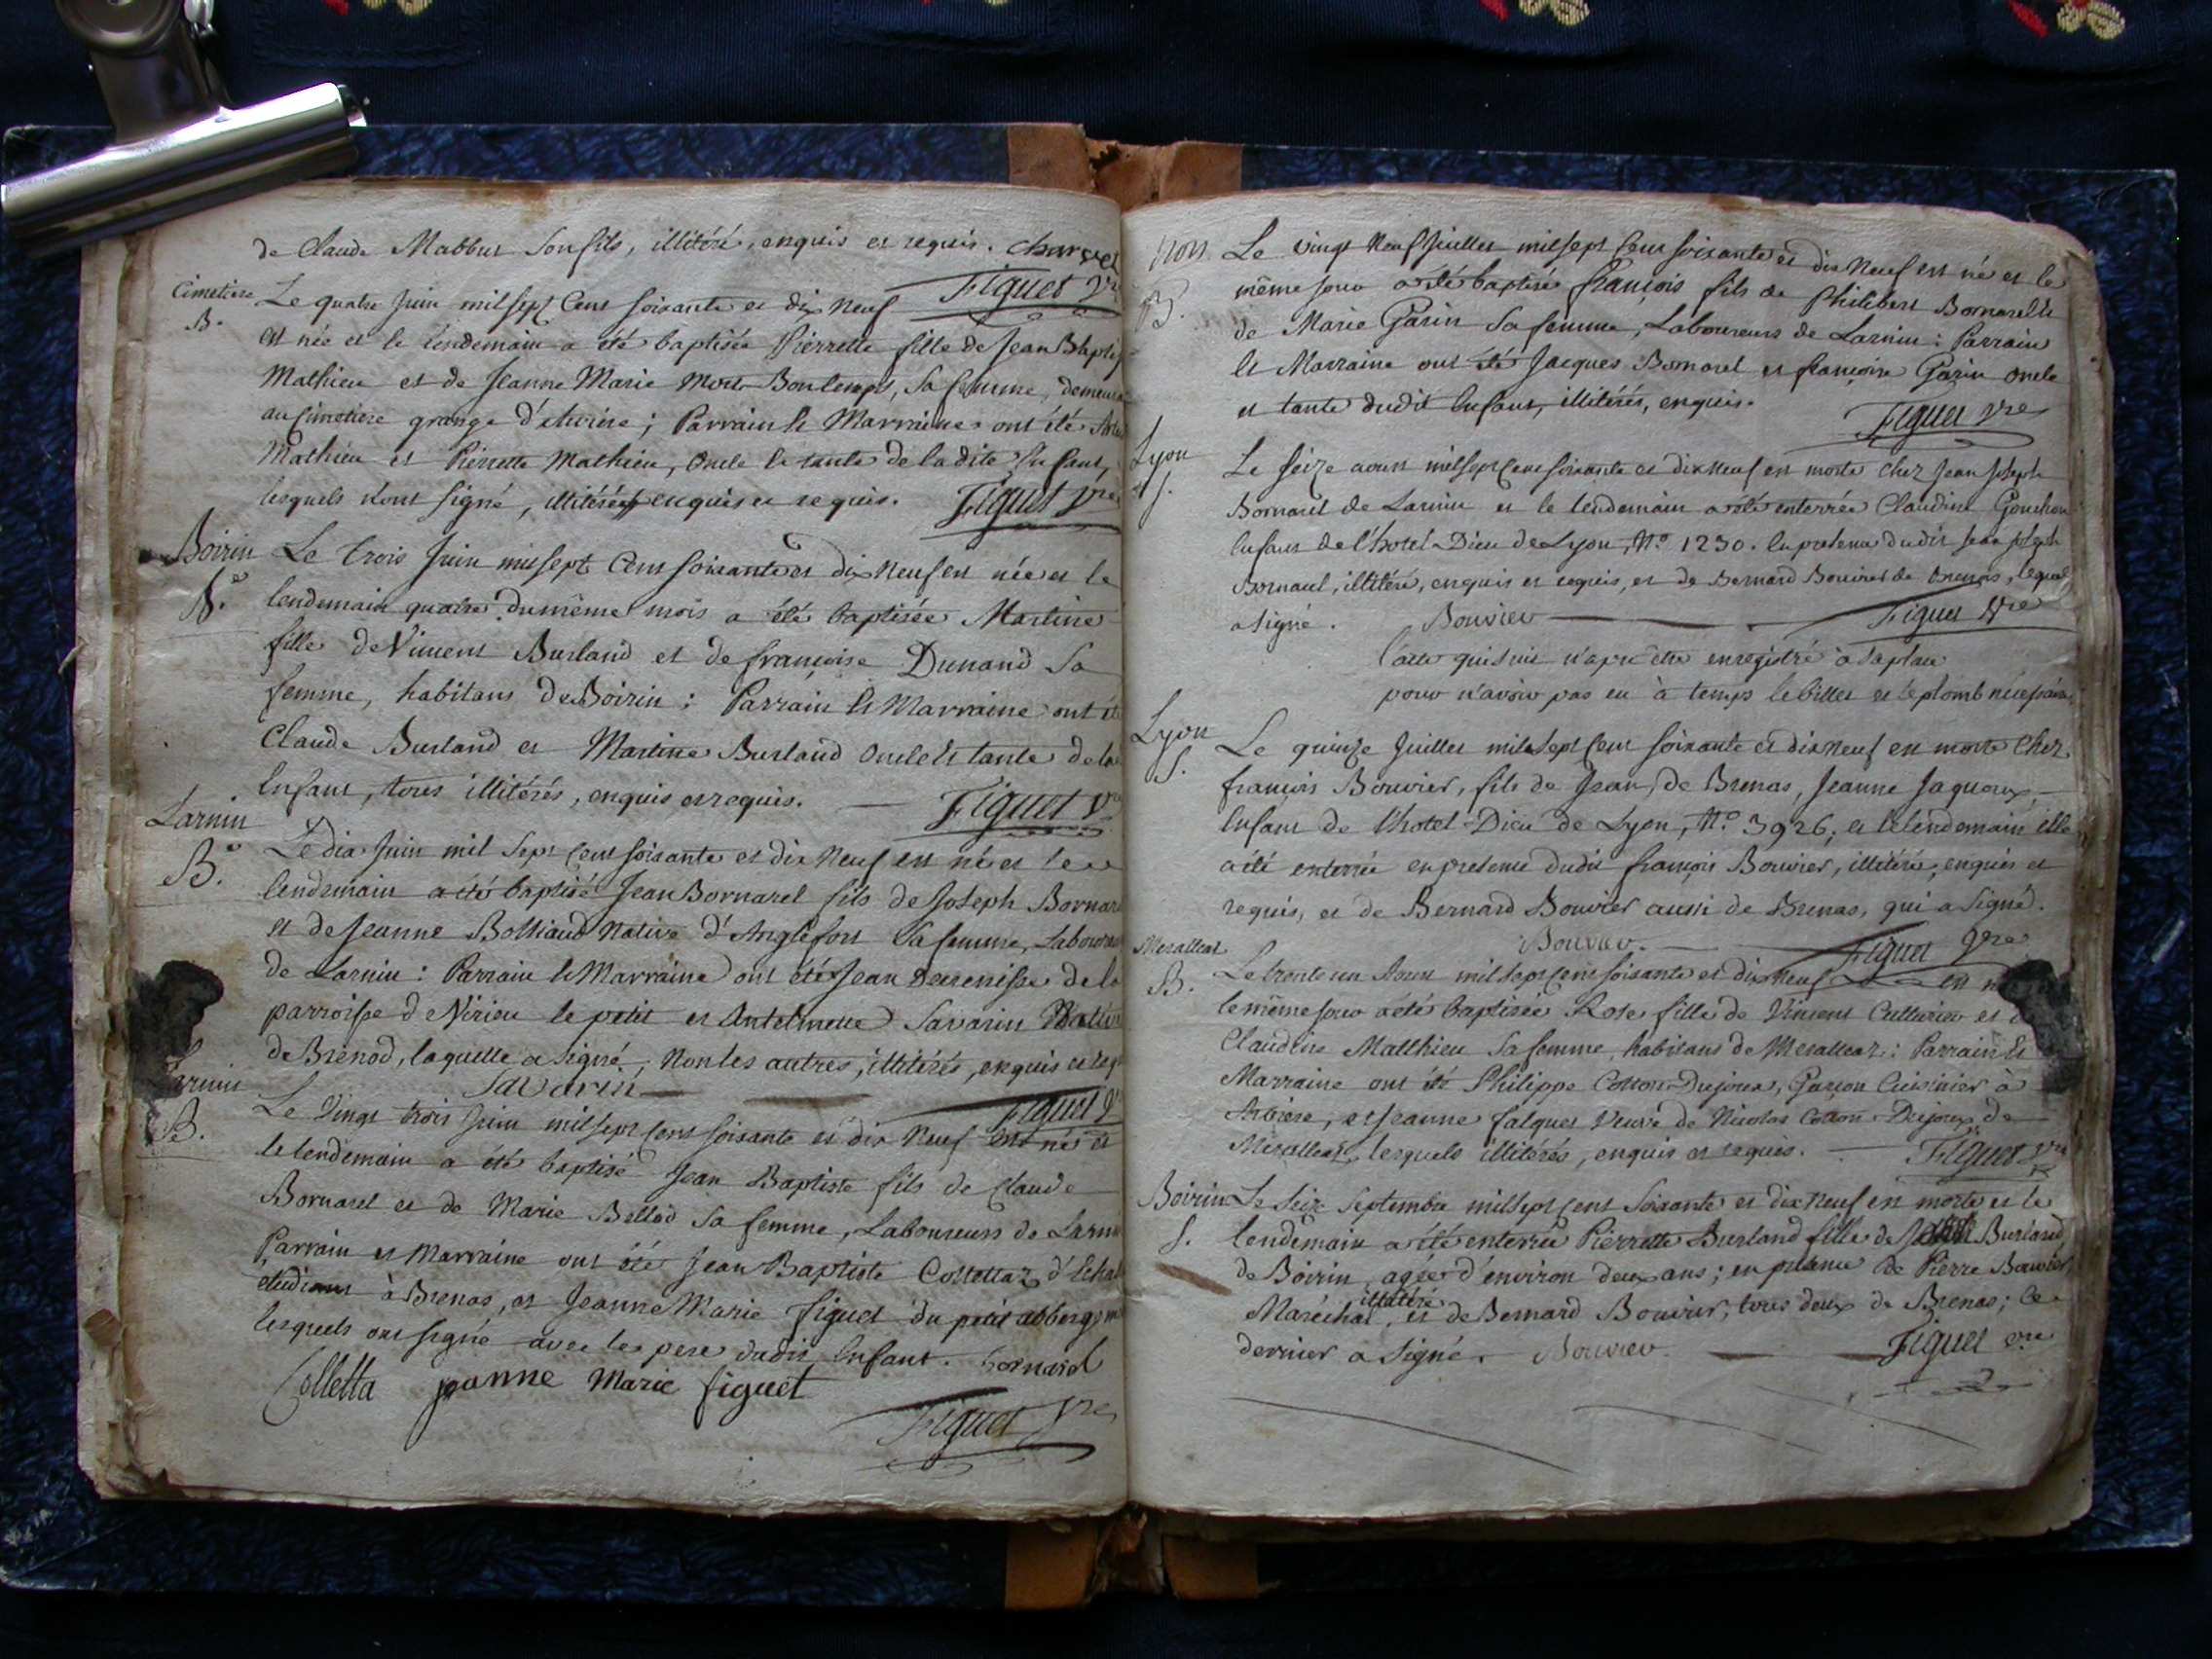 de Claude Mabbut son fils, illitéré, enquis et requis. Charvet
Figuet Vre
Cimetiere
B.
Le quatre Juin mil sept Cent soixante et dix neuf
est née et le lendemain a été baptisée Pierrette fille de Jean Baptis
Mathieu et de Jeanne Marie Bontemps, sa femme, demeura
au Cimetiere grange d'; Parrain et Marraine ont été
Mathieu et Pierrette Mathieu, oncle et tante de la dite Enfant,
lesquels n'ont signé, illitérés enquis et requis. Figuet Vre
Boirin
Le trois Juin mil sept Cent soixante et dix neuf est née et le
lendemain quatre du même mois a été baptisée Martine
fille de Vincent Burland et de françoise Dunand sa
femme, habitans de Boirin : Parrain et Marraine ont été
Claude Burland et Martine Burland oncle et tante de la
Enfant, tous illitérés, enquis et requis. Figuet Vre
Larnin
B.
Le dix Juin mil sept Cent soixante et dix neuf est né et le
lendemain a été baptisé Jean Bornarel fils de Joseph Bornare
et de Jeanne Bolliaud native d'Anglefort sa femme, Laboureu
de Larnin : Parrain et Marraine ont été Jean de la
parroisse de Virieu le petit et Antelmette Savarin Native
de Brénod, laquelle a signé, Non les autres, illitérés, enquis et req
Savarin Figuet V
Larnin
B.
Le vingt trois Juin mil sept Cent soixante et dix neuf est né et
le lendemain a été baptisé Jean Baptiste fils de Claude
Bornarel et de Marie Bellod sa femme, Laboureurs de Larnin
Parrain et Marraine ont été Jean Baptiste Collettaz d'
étudiant à Brenas, et Jeanne Marie figuet du petit abbergeme
lesquels ont signé avec le pere dudit Enfant. bornarel
Colletta jeanne Marie figuet
Figuet Vre
B.
Le vingt Neuf Juillet mil sept Cent soixante et dix Neuf est né et le
même jour a été baptisé françois fils de Philibert Bornarel et
de Marie Garin sa femme, Laboureurs de Larnin : Parrain
et Marraine ont été Jacques Bornarel et françoise Garin oncle
et tante dudit Enfant, illitérés, enquis.
Figuet Vre
Lyon
S.
Le seize aoust mil sept Cent soixante et dix neuf est morte chez Jean Joseph
Bornarel de Larnin et le lendemain a été enterrée Claudine Gonchon
Enfant de l'hotel-Dieu de Lyon, N.º 1230. En presence dudit Jean Joseph
Bornarel, illitéré, enquis et requis, et de Bernard Bouvier de Brenas, lequel
a signé. Bouvier Figuet Vre
L'acte qui suit n'a pu être enregistré à sa place
pour n'avoir pas eu à temps le billet et le plomb nécessaire
Lyon
S.
Le quinze Juillet mil sept Cent soixante et dix neuf est morte chez
françois Bouvier, fils de Jean, de Brenas, Jeanne Jaquoux,
Enfant de l'hotel-Dieu de Lyon, N.º 3926, et le lendemain elle
a été enterrée en presence dudit françois Bouvier, illitéré, enquis et
requis, et de Bernard Bouvier aussi de Brenas, qui a signé.
Bouvier. Figuet Vre
B.
Le trente un Aoust mil sept Cent soixante et dix neuf est née
le même jour a été baptisée Rose fille de Vincent et
Claudine Matthieu sa femme, habitans de : Parrain et
Marraine ont été Philippe Cotton-Dujoux, Garçon Cuisinier à
, et Jeanne falquet veuve de Nicolas Cotton-Dujoux de
lesquels illitérés, enquis et requis. Figuet Vre
Boirin
S.
Le seize Septembre mil sept cent soixante et dix neuf est morte et le
lendemain a été enterrée Pierrette Burland fille de Burland
de Boirin, agée d'environ deux ans; en presence de Pierre Bouvier
Maréchal, illitéré et de Bernard Bouvier, tous deux de Brenas; le
dernier a signé. Bouvier Figuet Vre